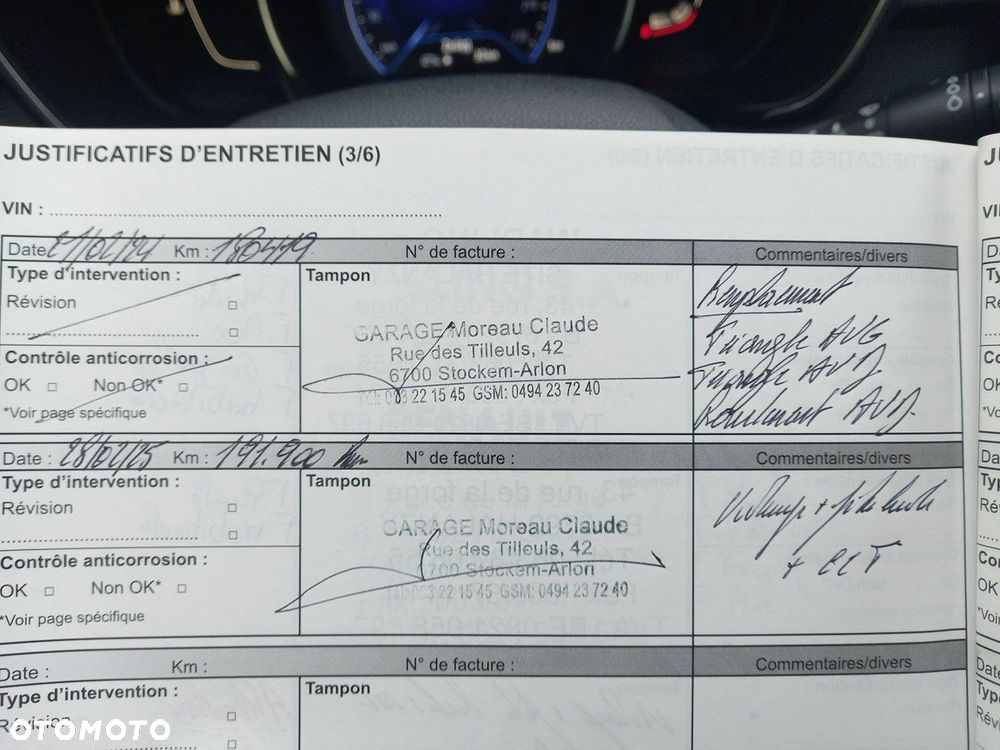 JUSTIFICATIFS D'ENTRETIEN (3/6)
VIN :
Date 21/02/24 Km : 180479 N° de facture : Commentaires/divers
Type d'intervention : Tampon Remplacement
Révision
GARAGE Moreau Claude Triangle AVG
Rue des Tilleuls, 42
Contrôle anticorrosion : 6700 Stockem-Arlon Triangle AVD
OK Non OK* Tél: 063 22 15 45 GSM: 0494 23 72 40 Roulement AVD.
*Voir page spécifique
Date : 28/02/25 Km : 191.900 Km N° de facture : Commentaires/divers
Type d'intervention : Tampon
Révision Vidange + filtre huile
GARAGE Moreau Claude
Rue des Tilleuls, 42
Contrôle anticorrosion : 6700 Stockem-Arlon + CCT
OK Non OK* Tél: 063 22 15 45 GSM: 0494 23 72 40
*Voir page spécifique
Date : Km : N° de facture : Commentaires/divers
Type d'intervention : Tampon
Révision
OTOMOTO